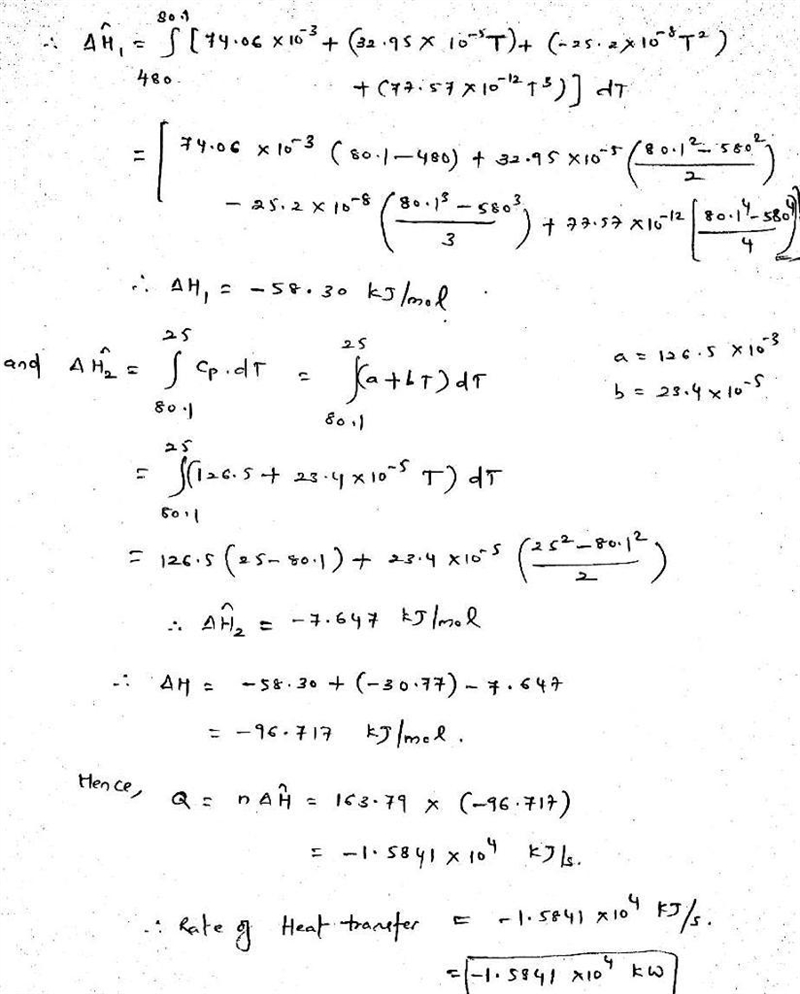 80.1
∴ ΔĤ₁ = ∫ [74.06 × 10⁻³ + (32.95 × 10⁻⁵T) + (-25.2 × 10⁻⁸T²)
480. + (77.57 × 10⁻¹² T³)] dT
= [ 74.06 × 10⁻³ (80.1 - 480) + 32.95 × 10⁻⁵ ((80.1² - 580²)/2)
- 25.2 × 10⁻⁸ ((80.1³ - 580³)/3) + 77.57 × 10⁻¹² [(80.1⁴ - 580⁴)/4]]
∴ ΔH₁ = -58.30 kJ/mol.
25 25 a = 126.5 × 10⁻³
and ΔĤ₂ = ∫ Cp.dT = ∫(a + bT) dT
80.1 80.1 b = 23.4 × 10⁻⁵
25
= ∫(126.5 + 23.4 × 10⁻⁵ T) dT
80.1
= 126.5 (25 - 80.1) + 23.4 × 10⁻⁵ ((25² - 80.1²)/2)
∴ ΔĤ₂ = -7.647 kJ/mol
∴ ΔH = -58.30 + (-30.77) - 7.647
= -96.717 kJ/mol.
Hence, Q = nΔĤ = 163.79 × (-96.717)
= -1.5841 × 10⁴ kJ/s.
∴ Rate of Heat transfer = -1.5841 × 10⁴ kJ/s.
= -1.5841 × 10⁴ kW